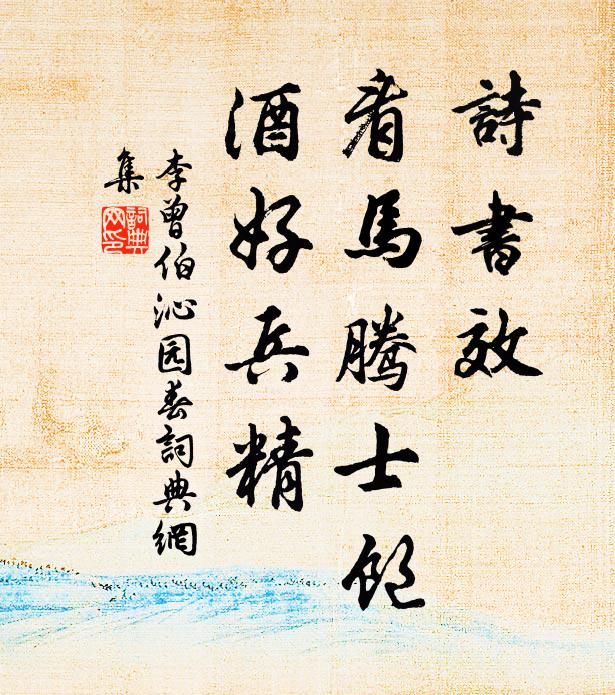 詩書效
看馬騰士飽
酒好兵精
李曾伯沁园春詞典網
集
詞典
网印